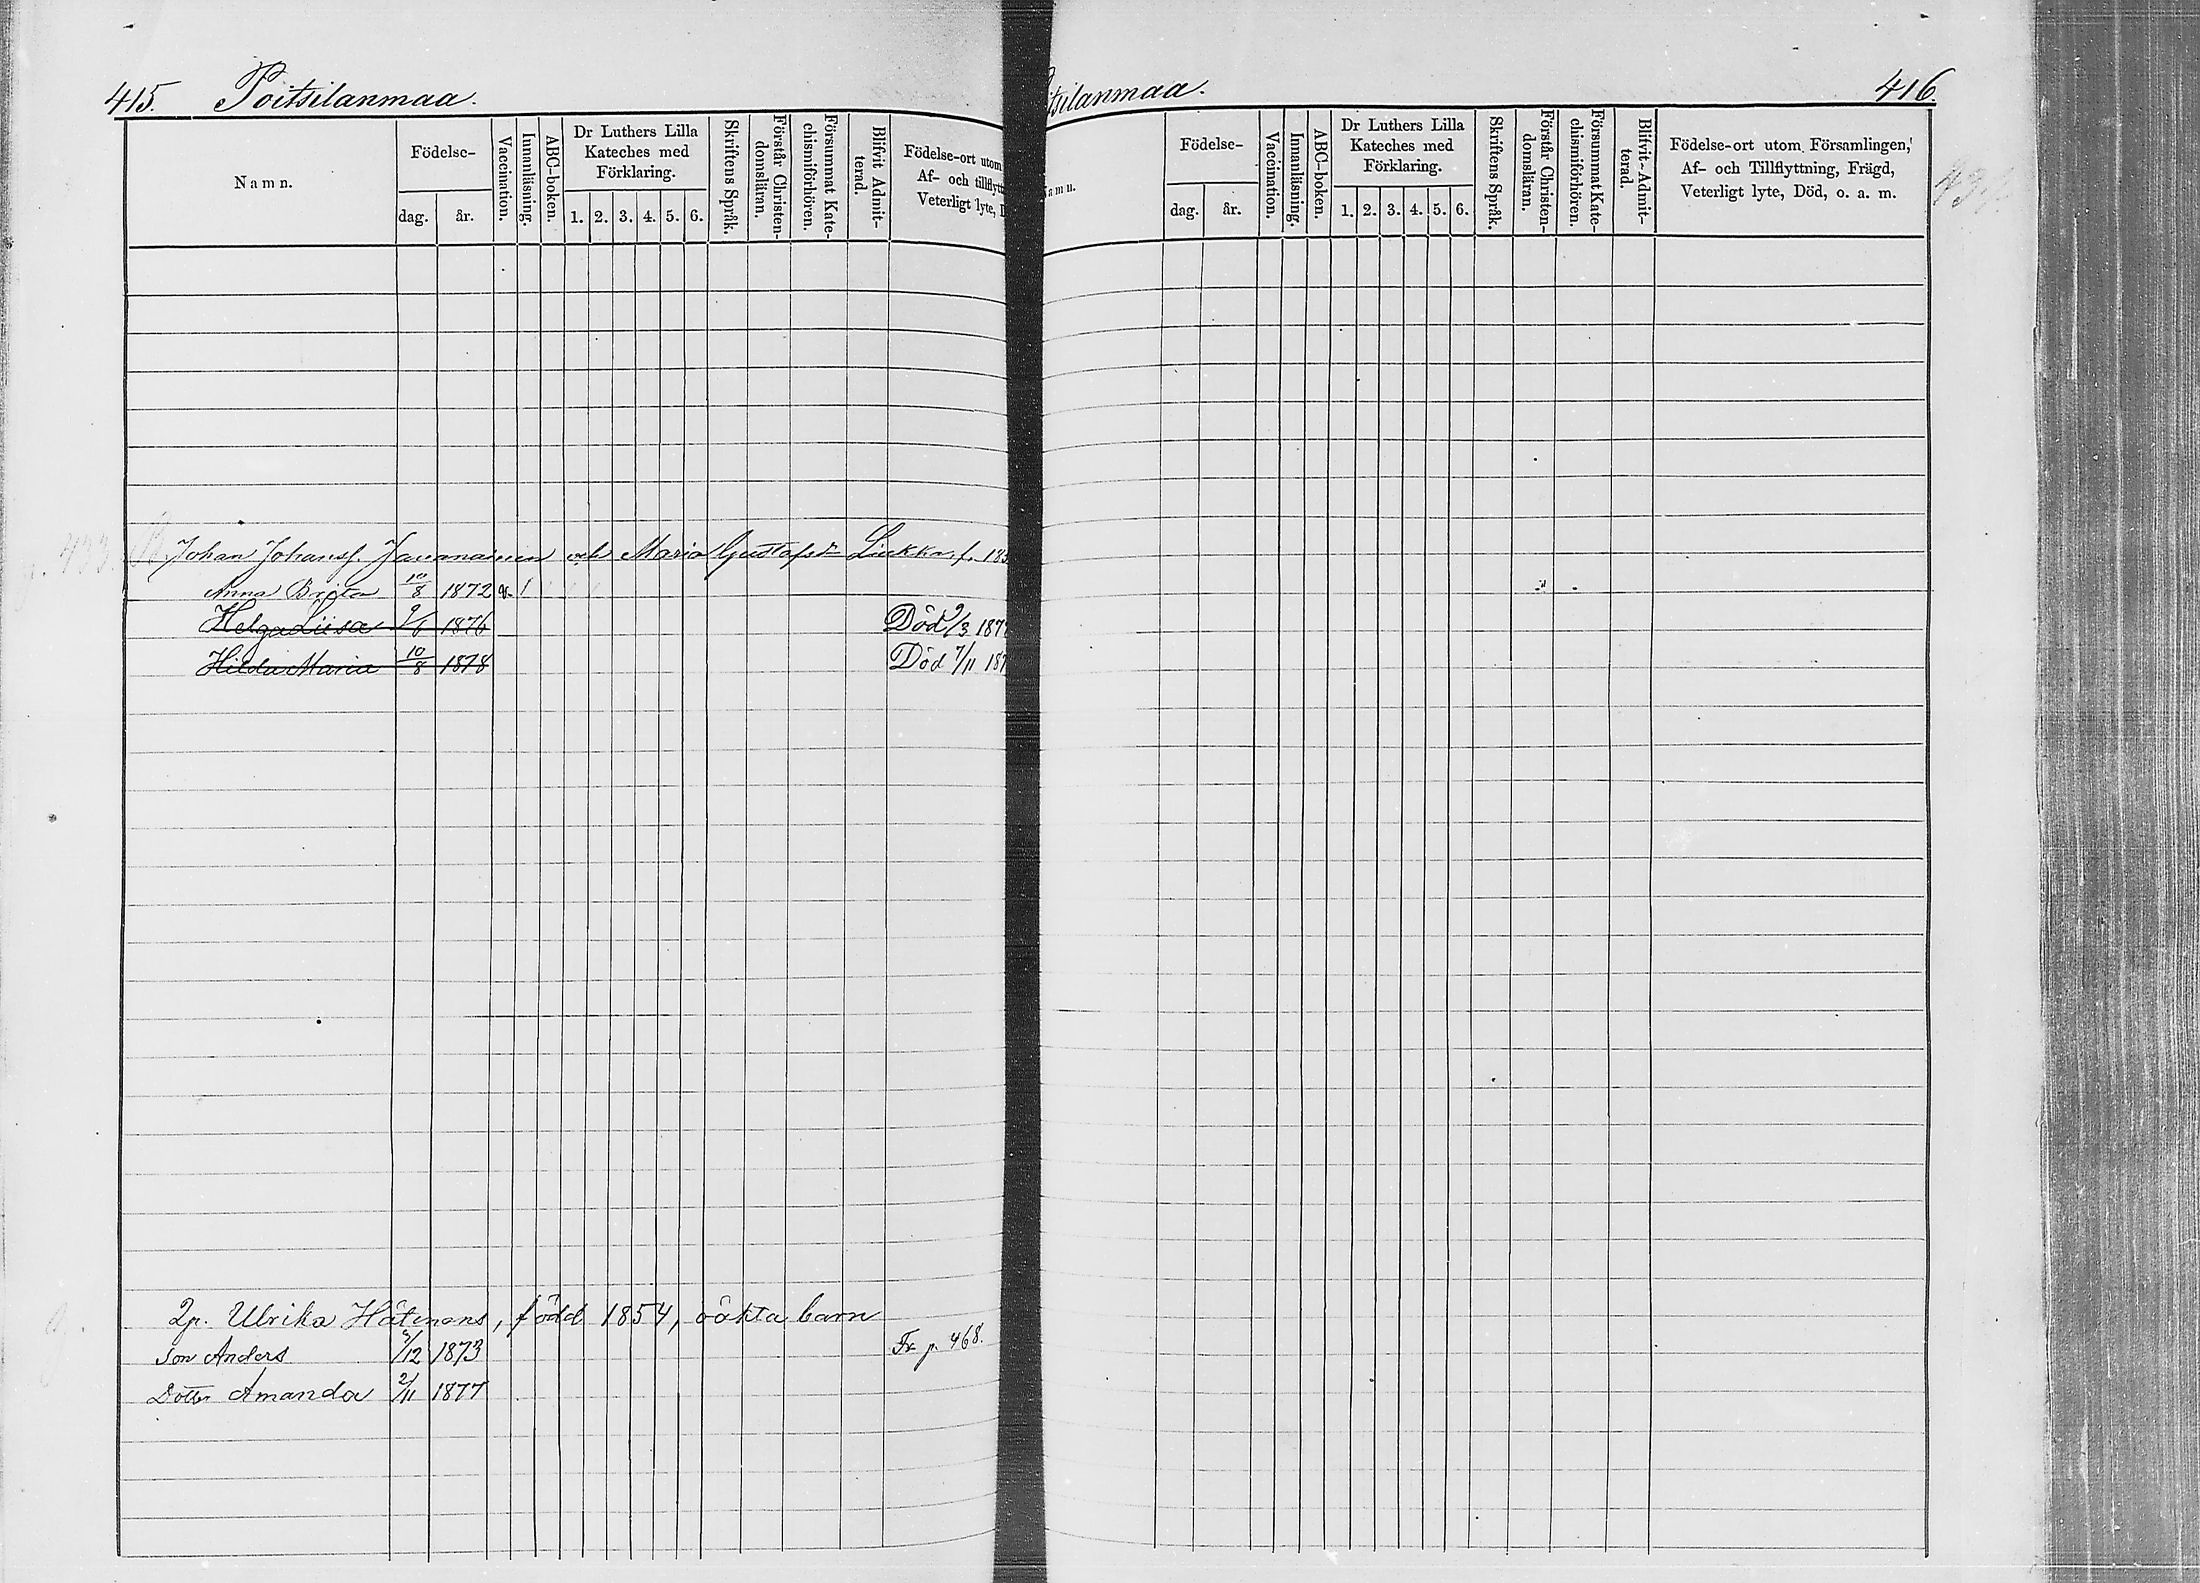 415. Poitsilanmaa.
Namn. Födelse- dag. år. Vaccination. Innanläsning. ABC-boken. Dr Luthers Lilla Kateches med Förklaring. 1. 2. 3. 4. 5. 6. Skriftens Språk. Förstår Christen-domsläran. Försummat Kate-chismiförhören. Blifvit Admit-terad. Födelse-ort utom
Af- och tillflytt
Veterligt lyte, D
Johan Johanss. och Maria Gustafsdr Liukka, f. 183
Anna Brita 10/8 1872 v. 1
Helga Liisa 9/6 1876 Död 9/3 187
Hilda Maria 10/8 1878 Död 7/11 187
Ulrika Hätinens, född 1854, oäkta barn
Son Anders /12 1873 Fr p. 468.
Dotter Amanda 2/11 1877
itsilanmaa. 416.
amn. Födelse- dag. år. Vaccination. Innanläsning. ABC-boken. Dr Luthers Lilla Kateches med Förklaring. 1. 2. 3. 4. 5. 6. Skriftens Språk. Förstår Christen-domsläran. Försummat Kate-chismiförhören. Blifvit Admit-terad. Födelse-ort utom Församlingen,
Af- och Tillflyttning, Frägd,
Veterligt lyte, Död, o. a. m.